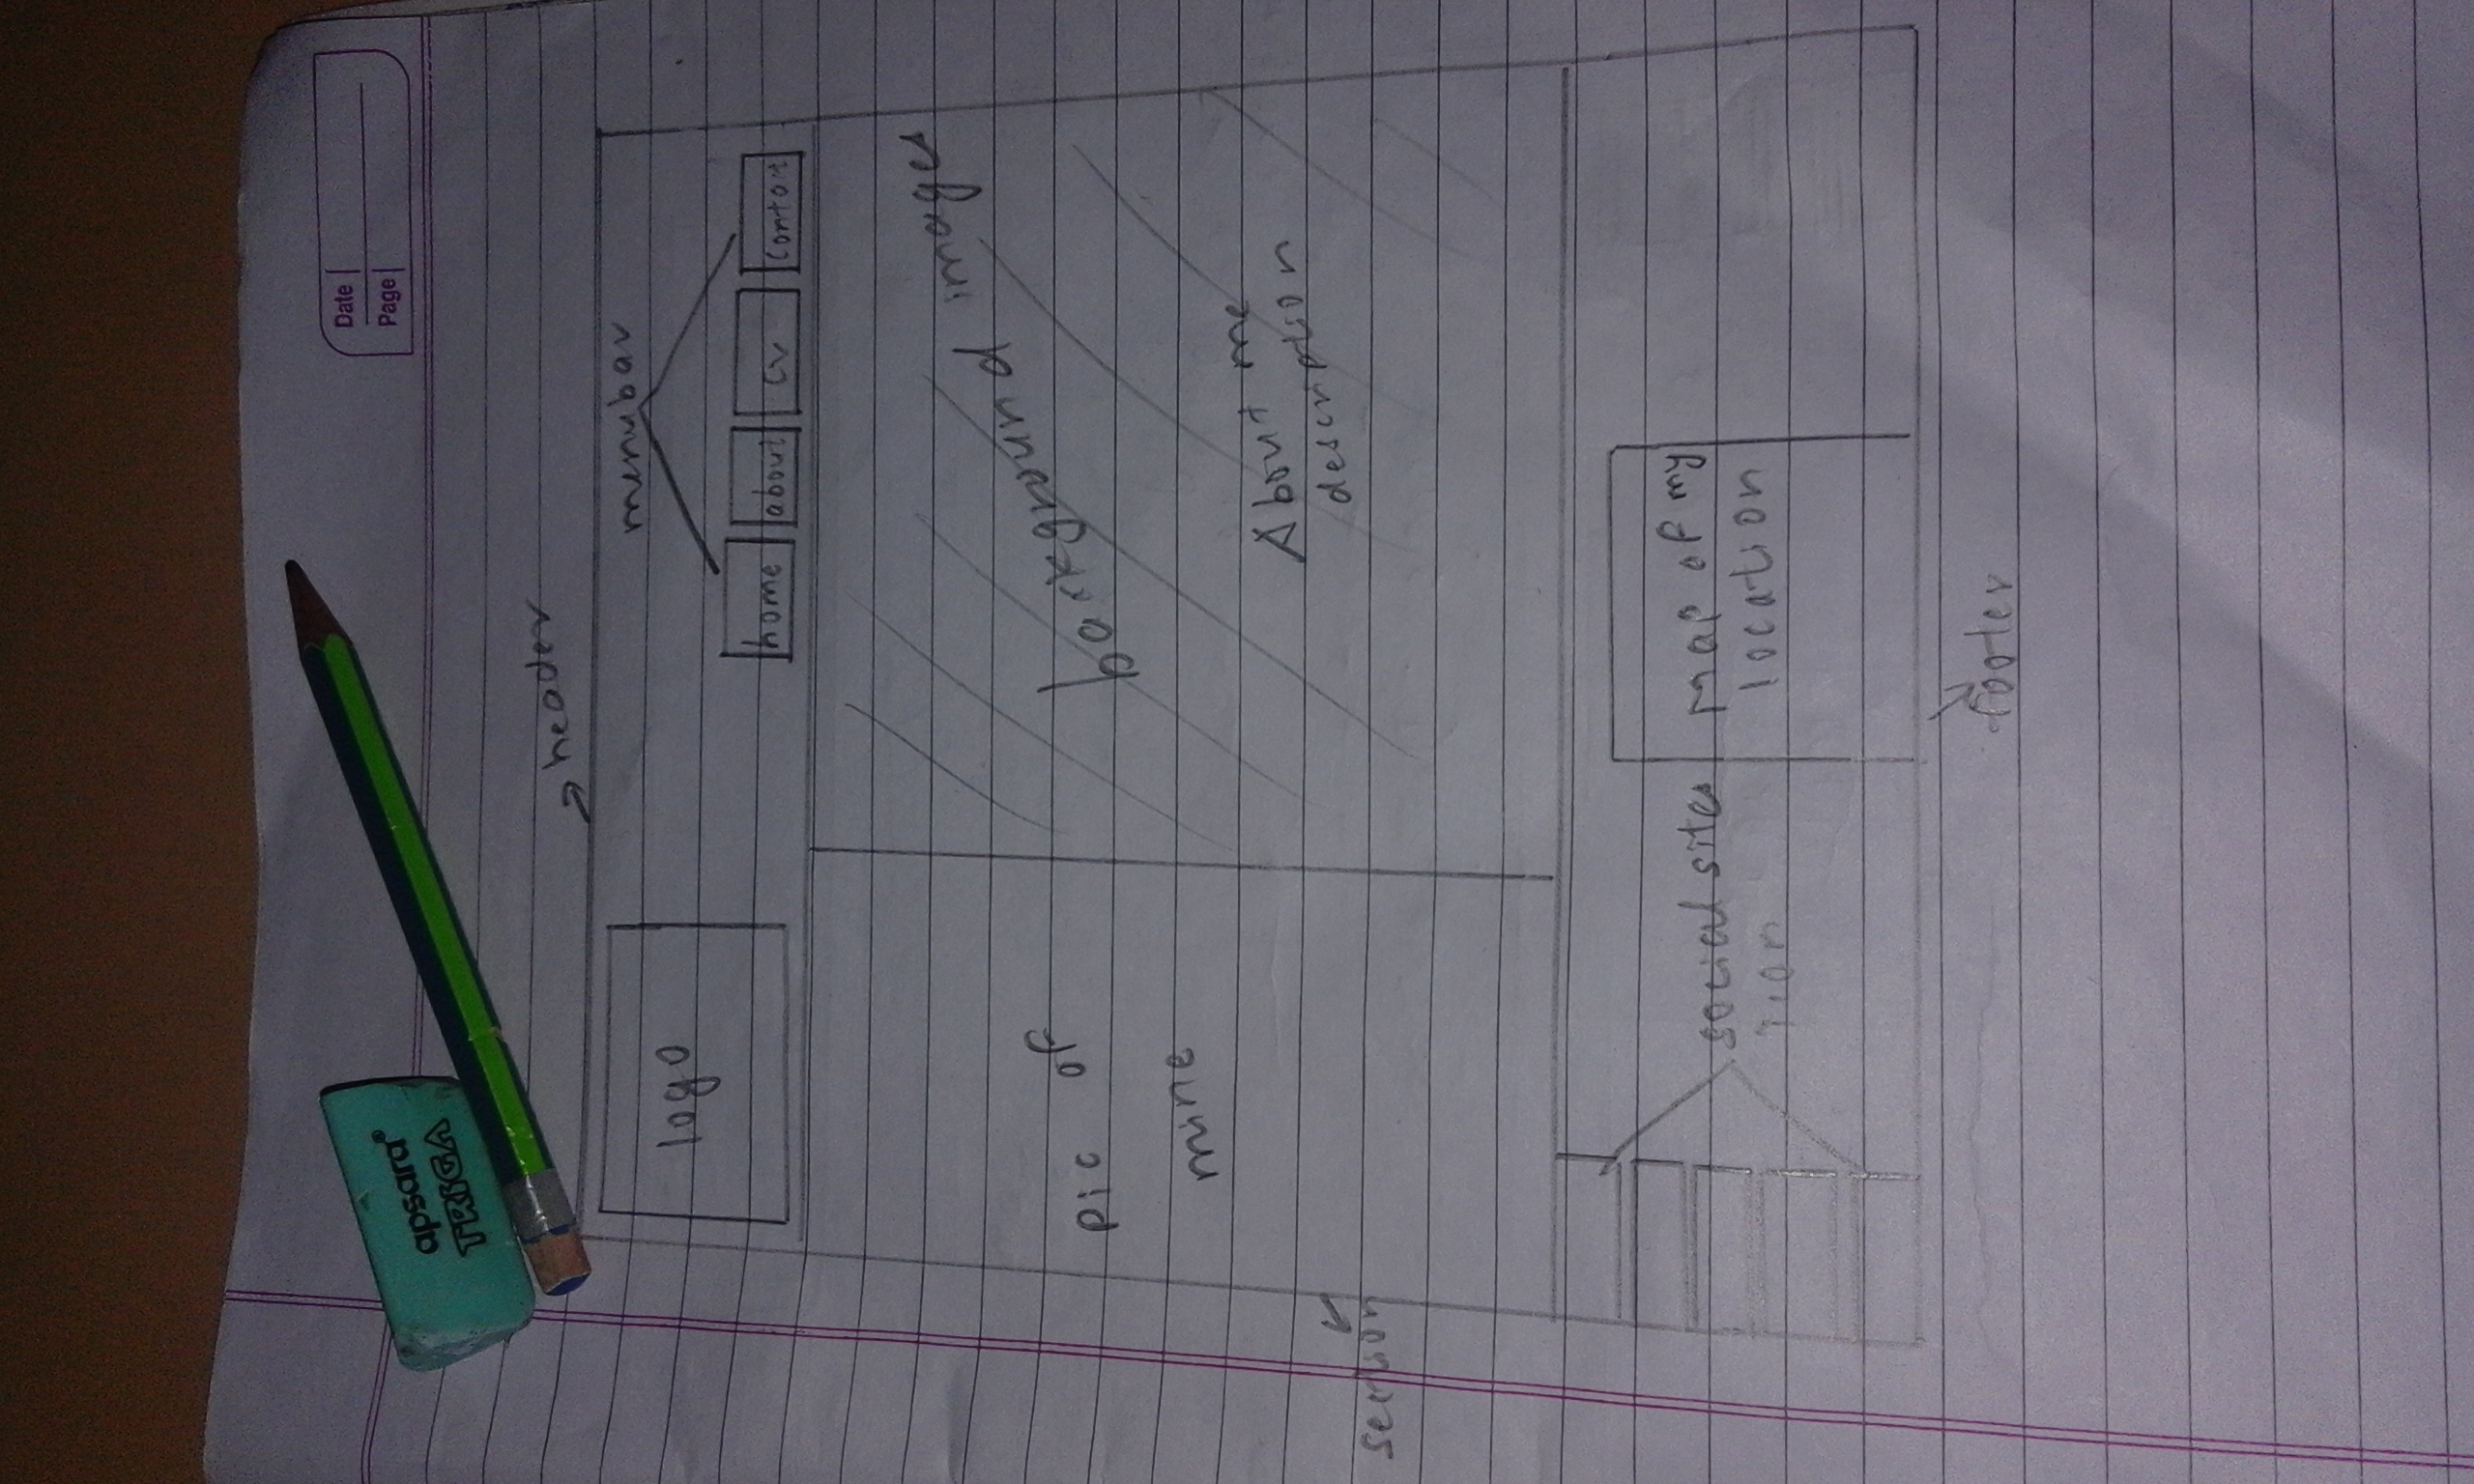 apsara
TRIGA
Date
Page
header
logo
menubar
home
about
cv
contact
background images
pic of
mine
About me
description
section
social sites
map of my
location
footer